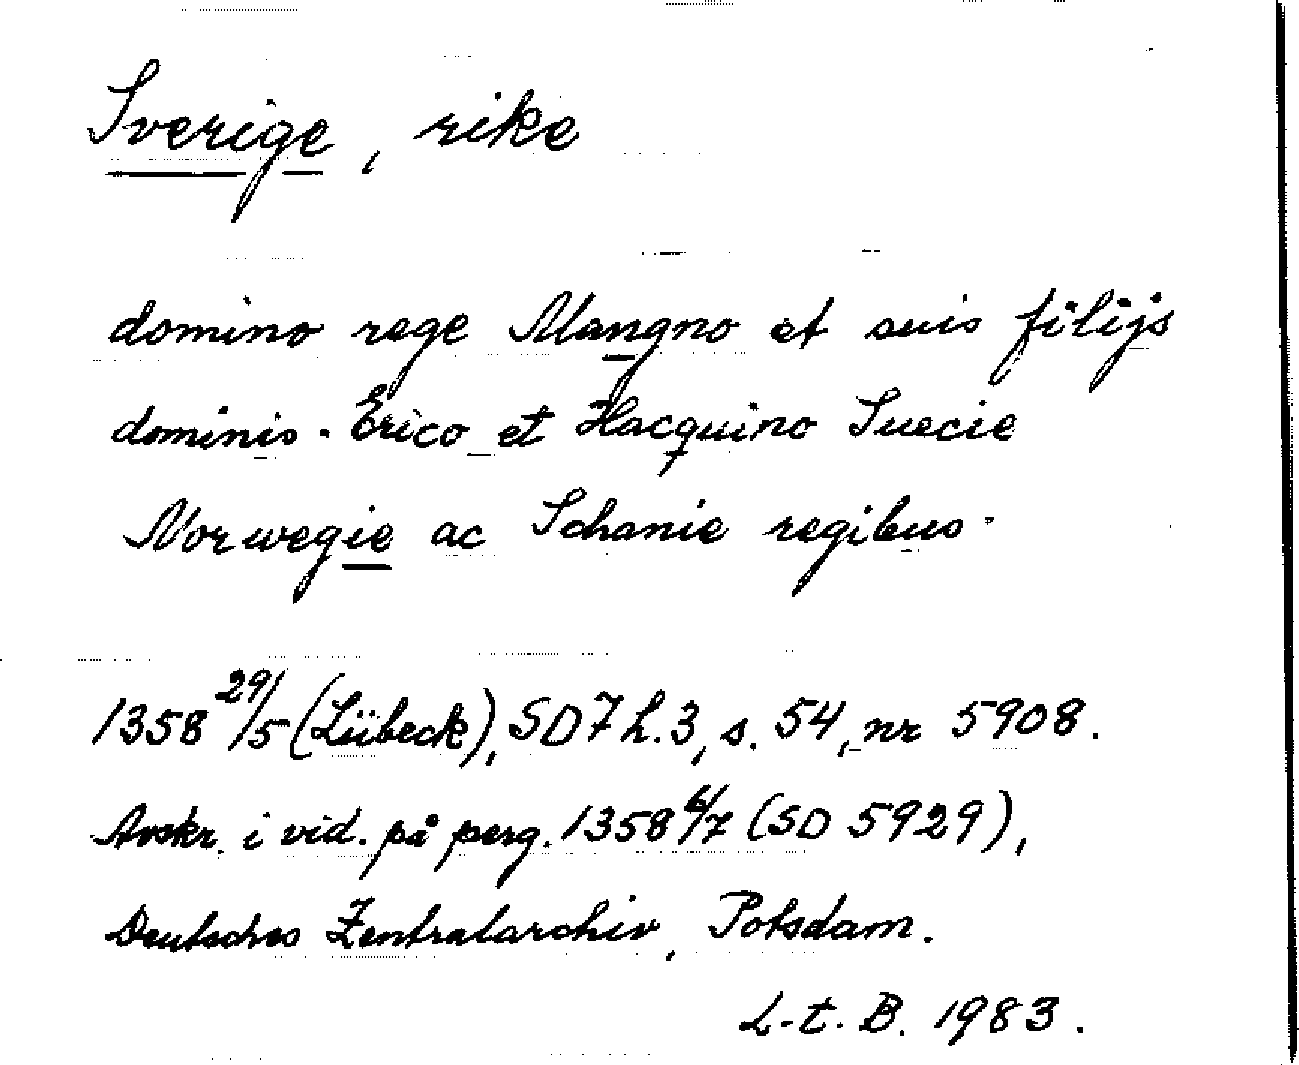 Sverige, rike
domino rege Mangno et suis filijs
dominis. Erico et Hacquino Suecie
Norwegie ac Schanie regibus.
1358 29/5 (Lübeck), SD 7 h. 3, s. 54, nr 5908.
Avskr. i vid. på perg. 1358 6/7 (SD 5929),
Deutsches Zentralarchiv, Potsdam.
L. t. B. 1983.